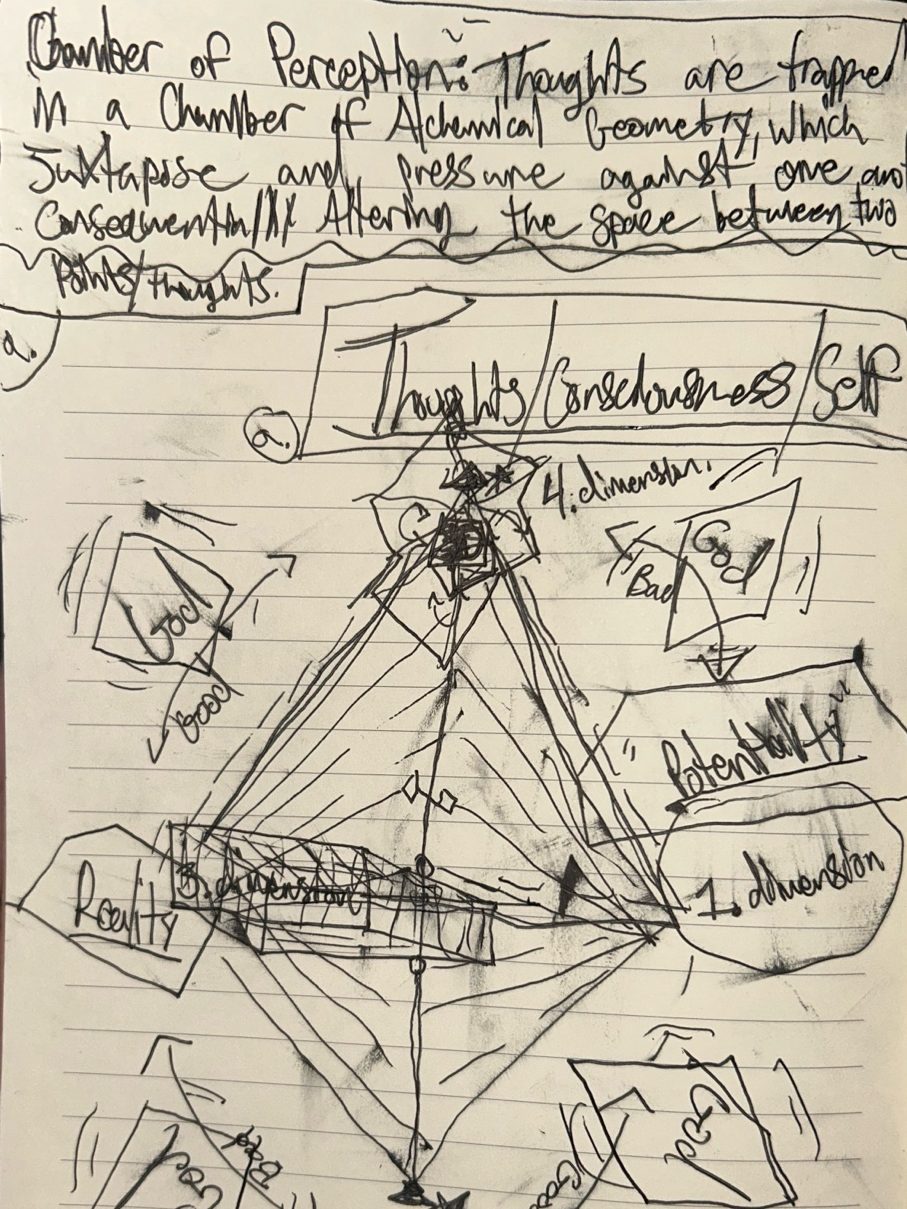 Chamber of Perception: Thoughts are trapped
in a Chamber of Alchemical Geometry, which
Juxtapose and pressure against one ano
Consequentially Altering the space between two
Points/thoughts.
a.
a. Thoughts/Consciousness/Self
4. dimension.
God
God
Bad
Good
"Potentiality"
3. dimension
1. dimension
Reality
God
God
Bad
Good